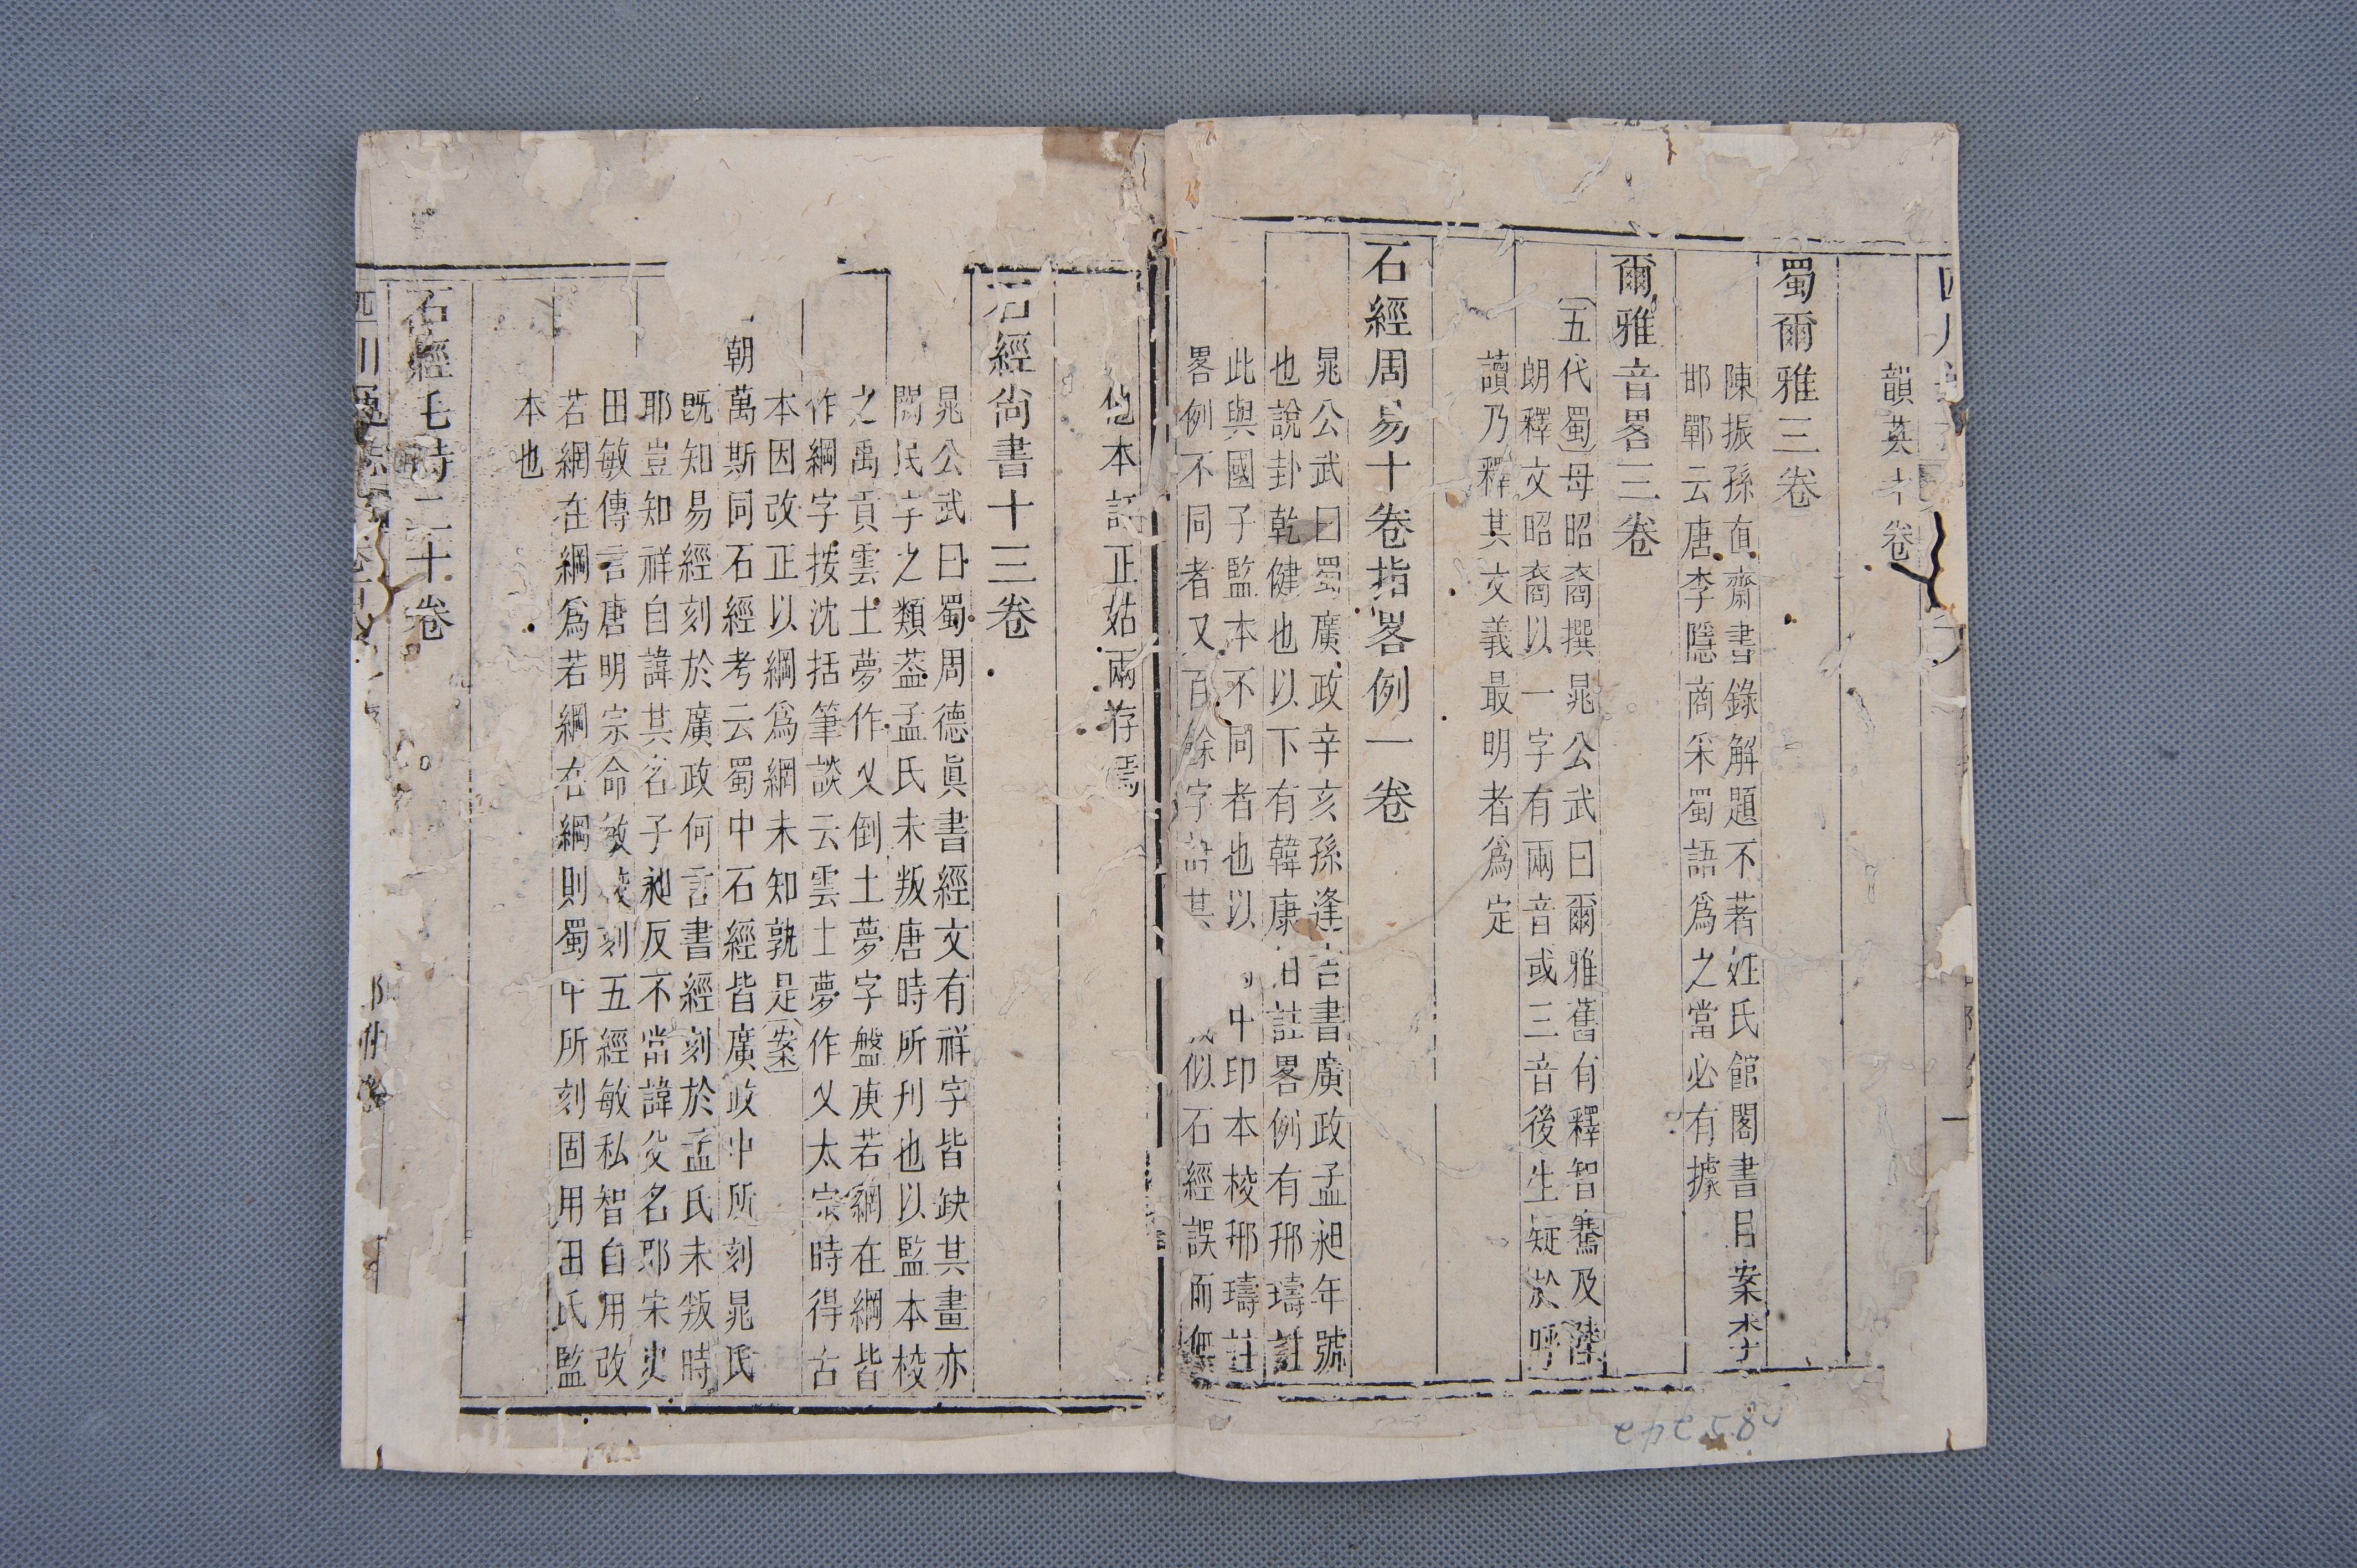 韻英十卷
蜀爾雅三卷
陳振孫直齋書錄解題不著姓氏館閣書目案李
邯鄲云唐李隱商采蜀語爲之當必有據
爾雅音畧三卷
五代蜀母昭裔撰晁公武曰爾雅舊有釋智騫及陸
朗釋文昭裔以一字有兩音或三音後生疑於呼
讀乃釋其文義最明者爲定
石經周易十卷指畧例一卷
晁公武曰蜀廣政辛亥孫逢吉書廣政孟昶年號
也說卦乾健也以下有韓康伯註畧例有邢璹註
此與國子監本不同者也以中印本校邢璹註
畧例不同者又百餘字詳其似石經誤而無
他本訂正姑兩存焉
石經尙書十三卷
晁公武曰蜀周德眞書經文有祥字皆缺其畫亦
闕民字之類葢孟氏未叛唐時所刋也以監本校
之禹貢雲土夢作乂倒土夢字盤庚若網在綱皆
作綱字按沈括筆談云雲土夢作乂太宗時得古
本因改正以綱爲網未知孰是案
朝萬斯同石經考云蜀中石經皆廣政中所刻晁氏
旣知易經刻於廣政何言書經刻於孟氏未叛時
耶豈知祥自諱其名子昶反不當諱父名耶宋史
田敏傳言唐明宗命敏校刻五經敏私智自用改
若網在綱爲若綱在綱則蜀中所刻固用田氏監
本也
石經毛詩二十卷